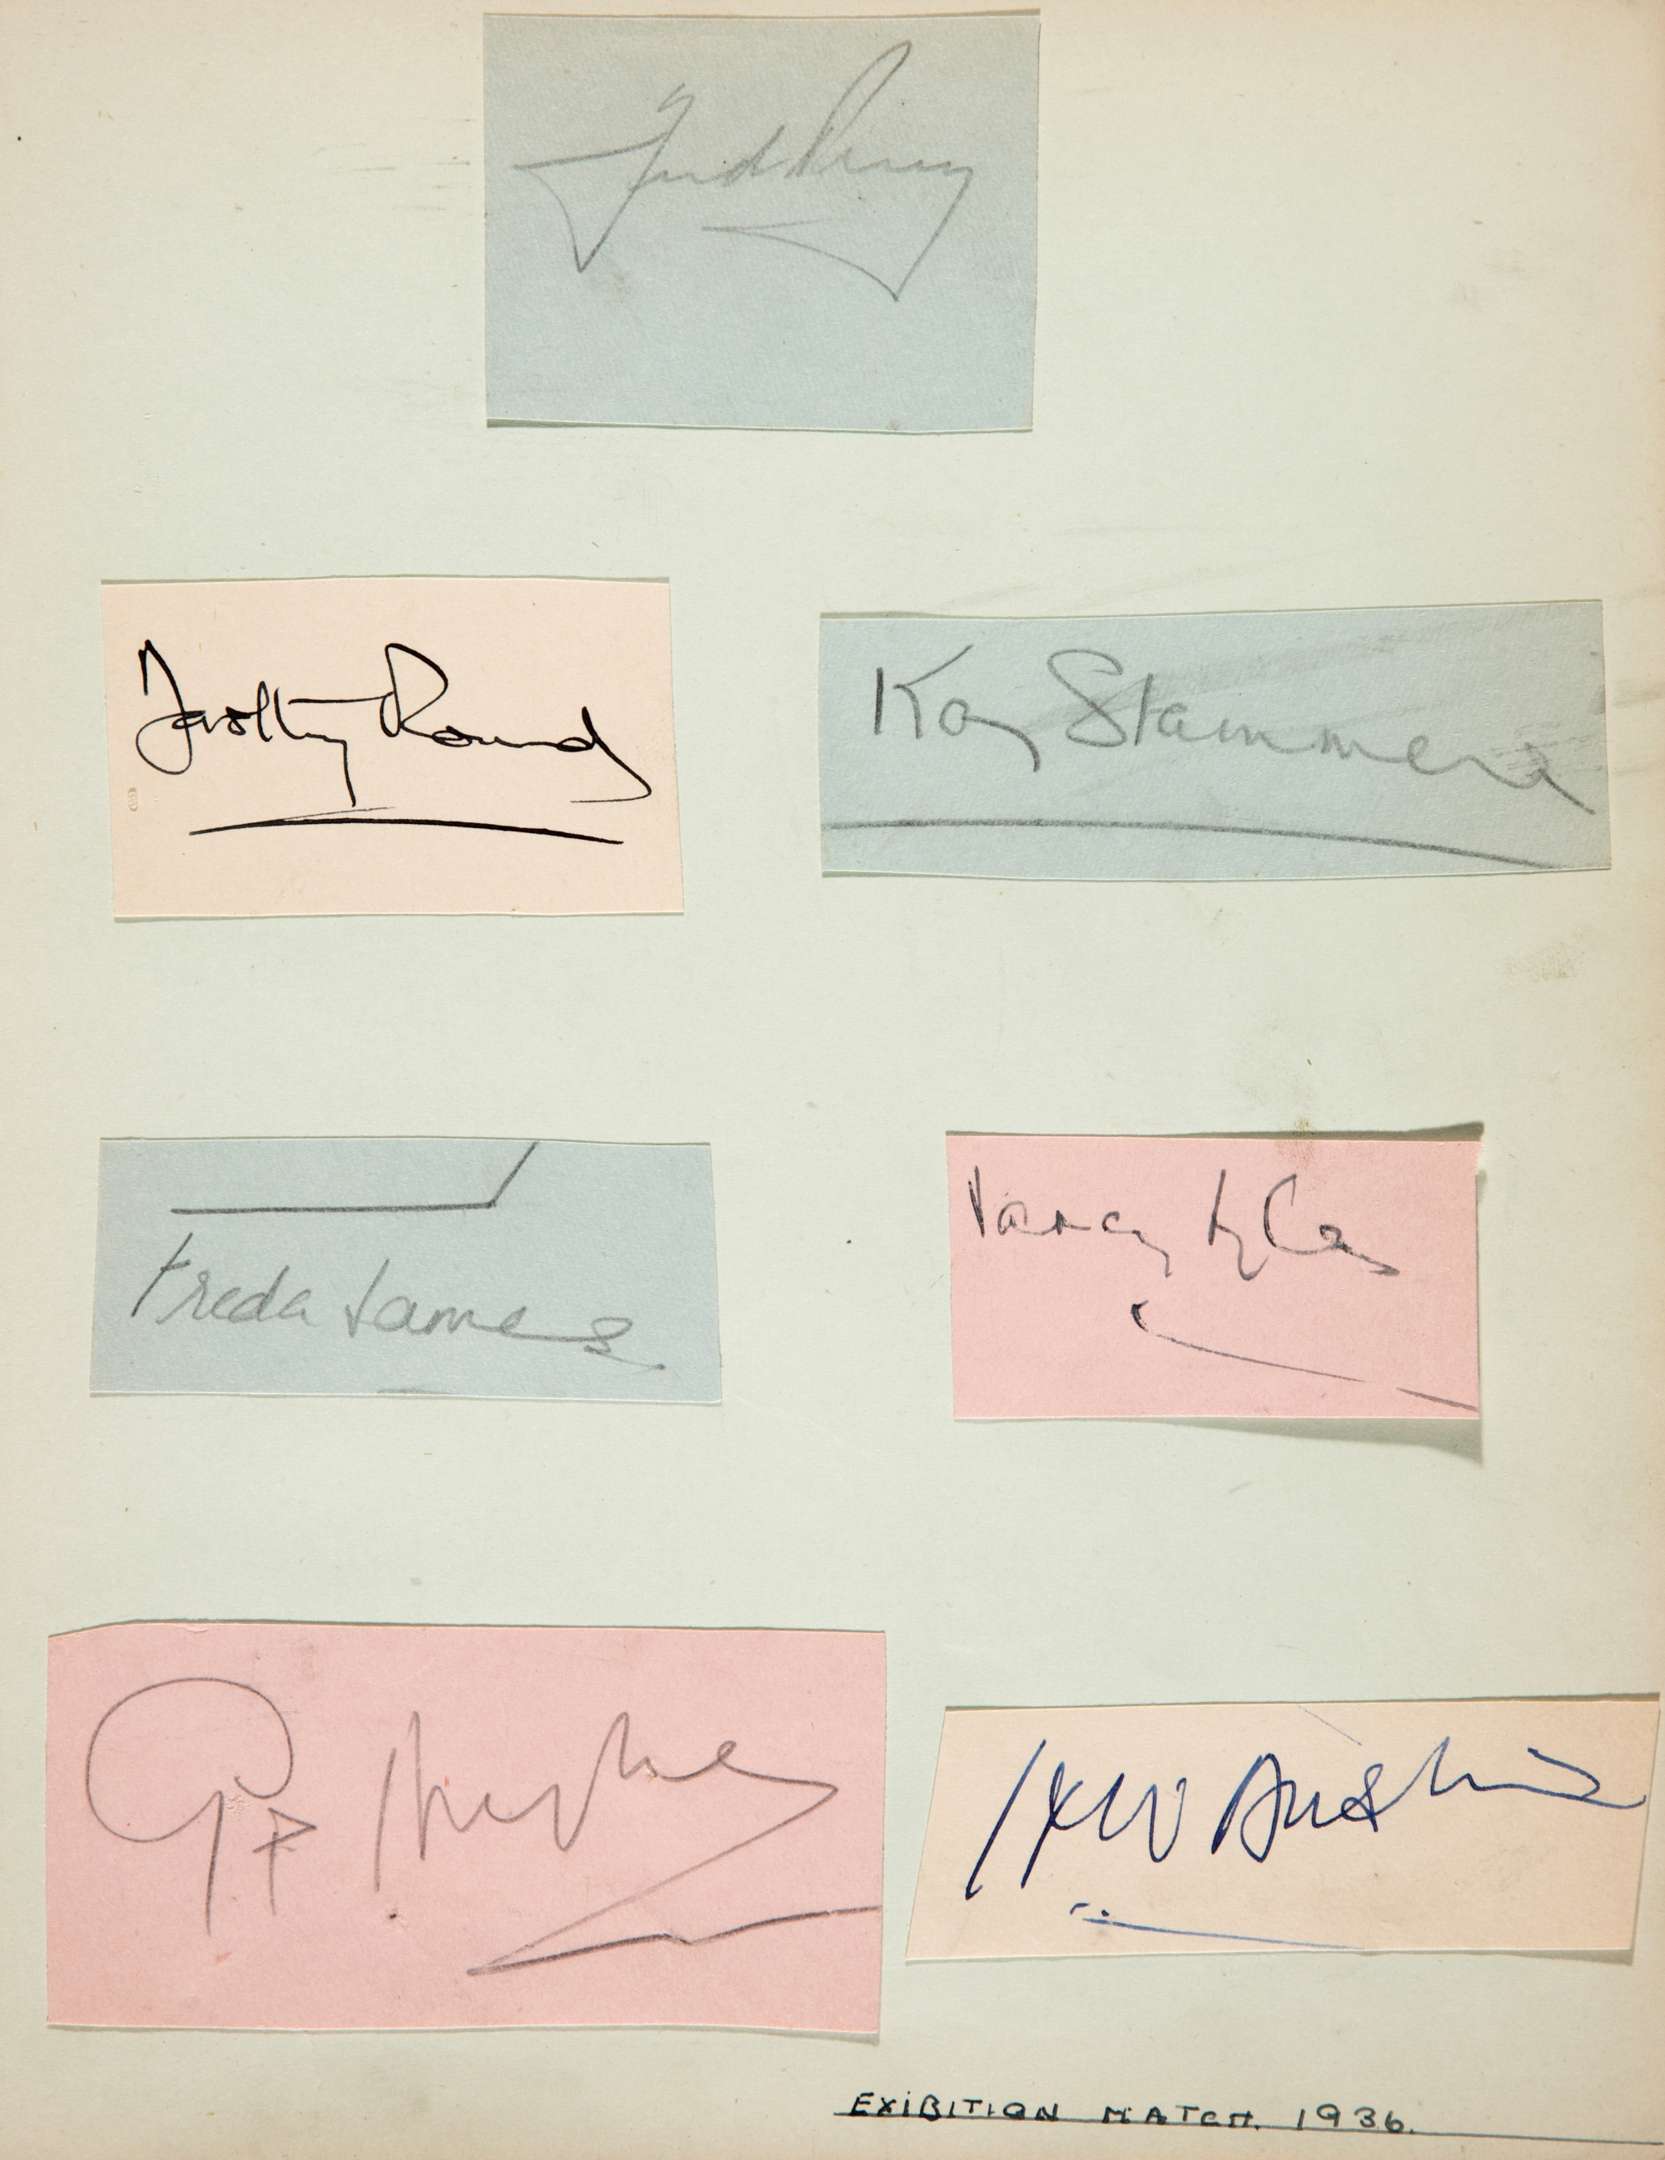 Fred Perry
Dorothy Round
Kay Stammers
Freda James
Nancy Lyle
G P Hughes
H W Austin
EXIBITION MATCH. 1936.